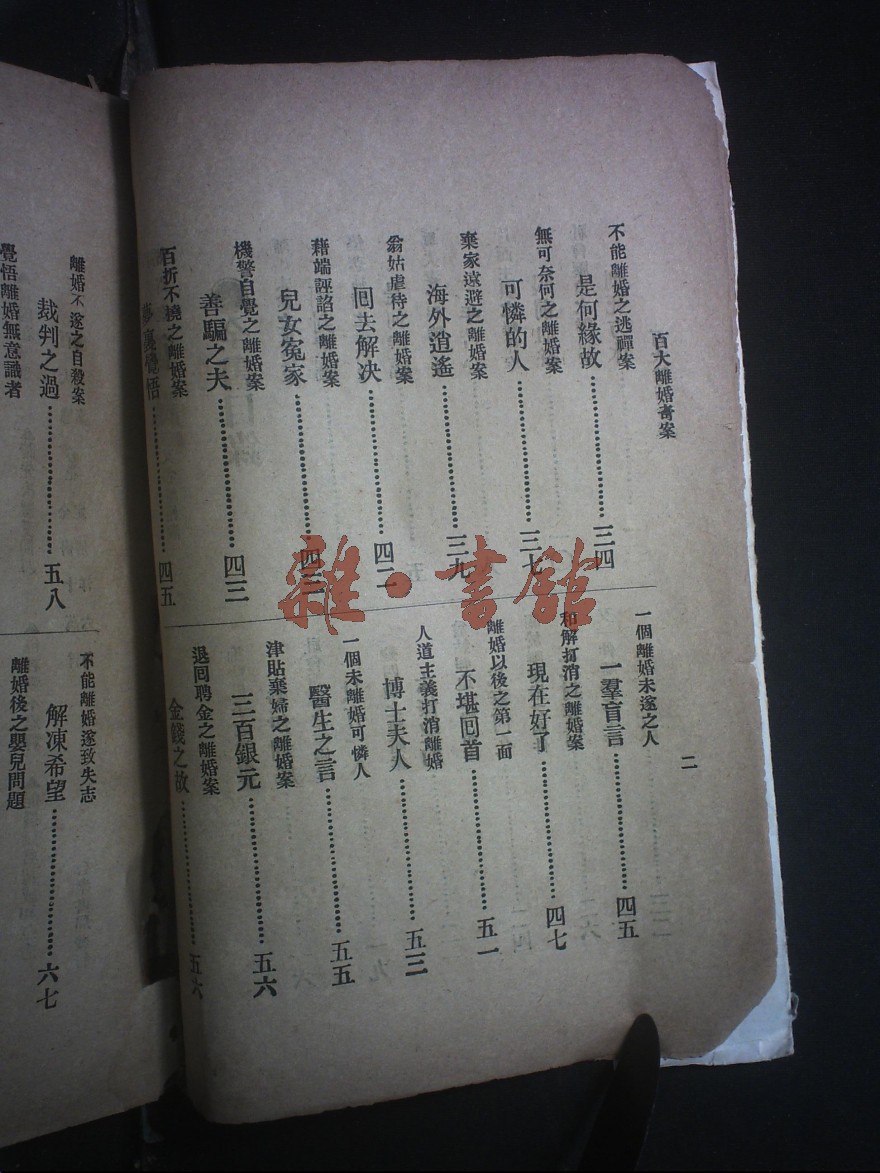 百大離婚奇案
二
不能離婚之逃禪案
是何緣故…………三四
無可奈何之離婚案
可憐的人…………三七
棄家遠避之離婚案
海外逍遙…………三九
翁姑虐待之離婚案
回去解決…………四二
藉端誣諂之離婚案
兒女冤家…………四三
機警自覺之離婚案
善騙之夫…………四三
百折不撓之離婚案
裏覺悟…………四五
一個離婚未遂之人
一羣盲言…………四五
和解打消之離婚案
現在好了…………四七
離婚以後之第一面
不堪回首…………五一
人道主義打消離婚
博士夫人…………五三
一個未離婚可憐人
醫生之言…………五五
津貼棄婦之離婚案
三百銀元…………五六
退回聘金之離婚案
金錢之故…………五六
離婚不遂之自殺案
裁判之過…………五八
覺悟離婚無意識者
不能離婚遂致失志
解凍希望…………六七
離婚後之嬰兒問題
雜·書館